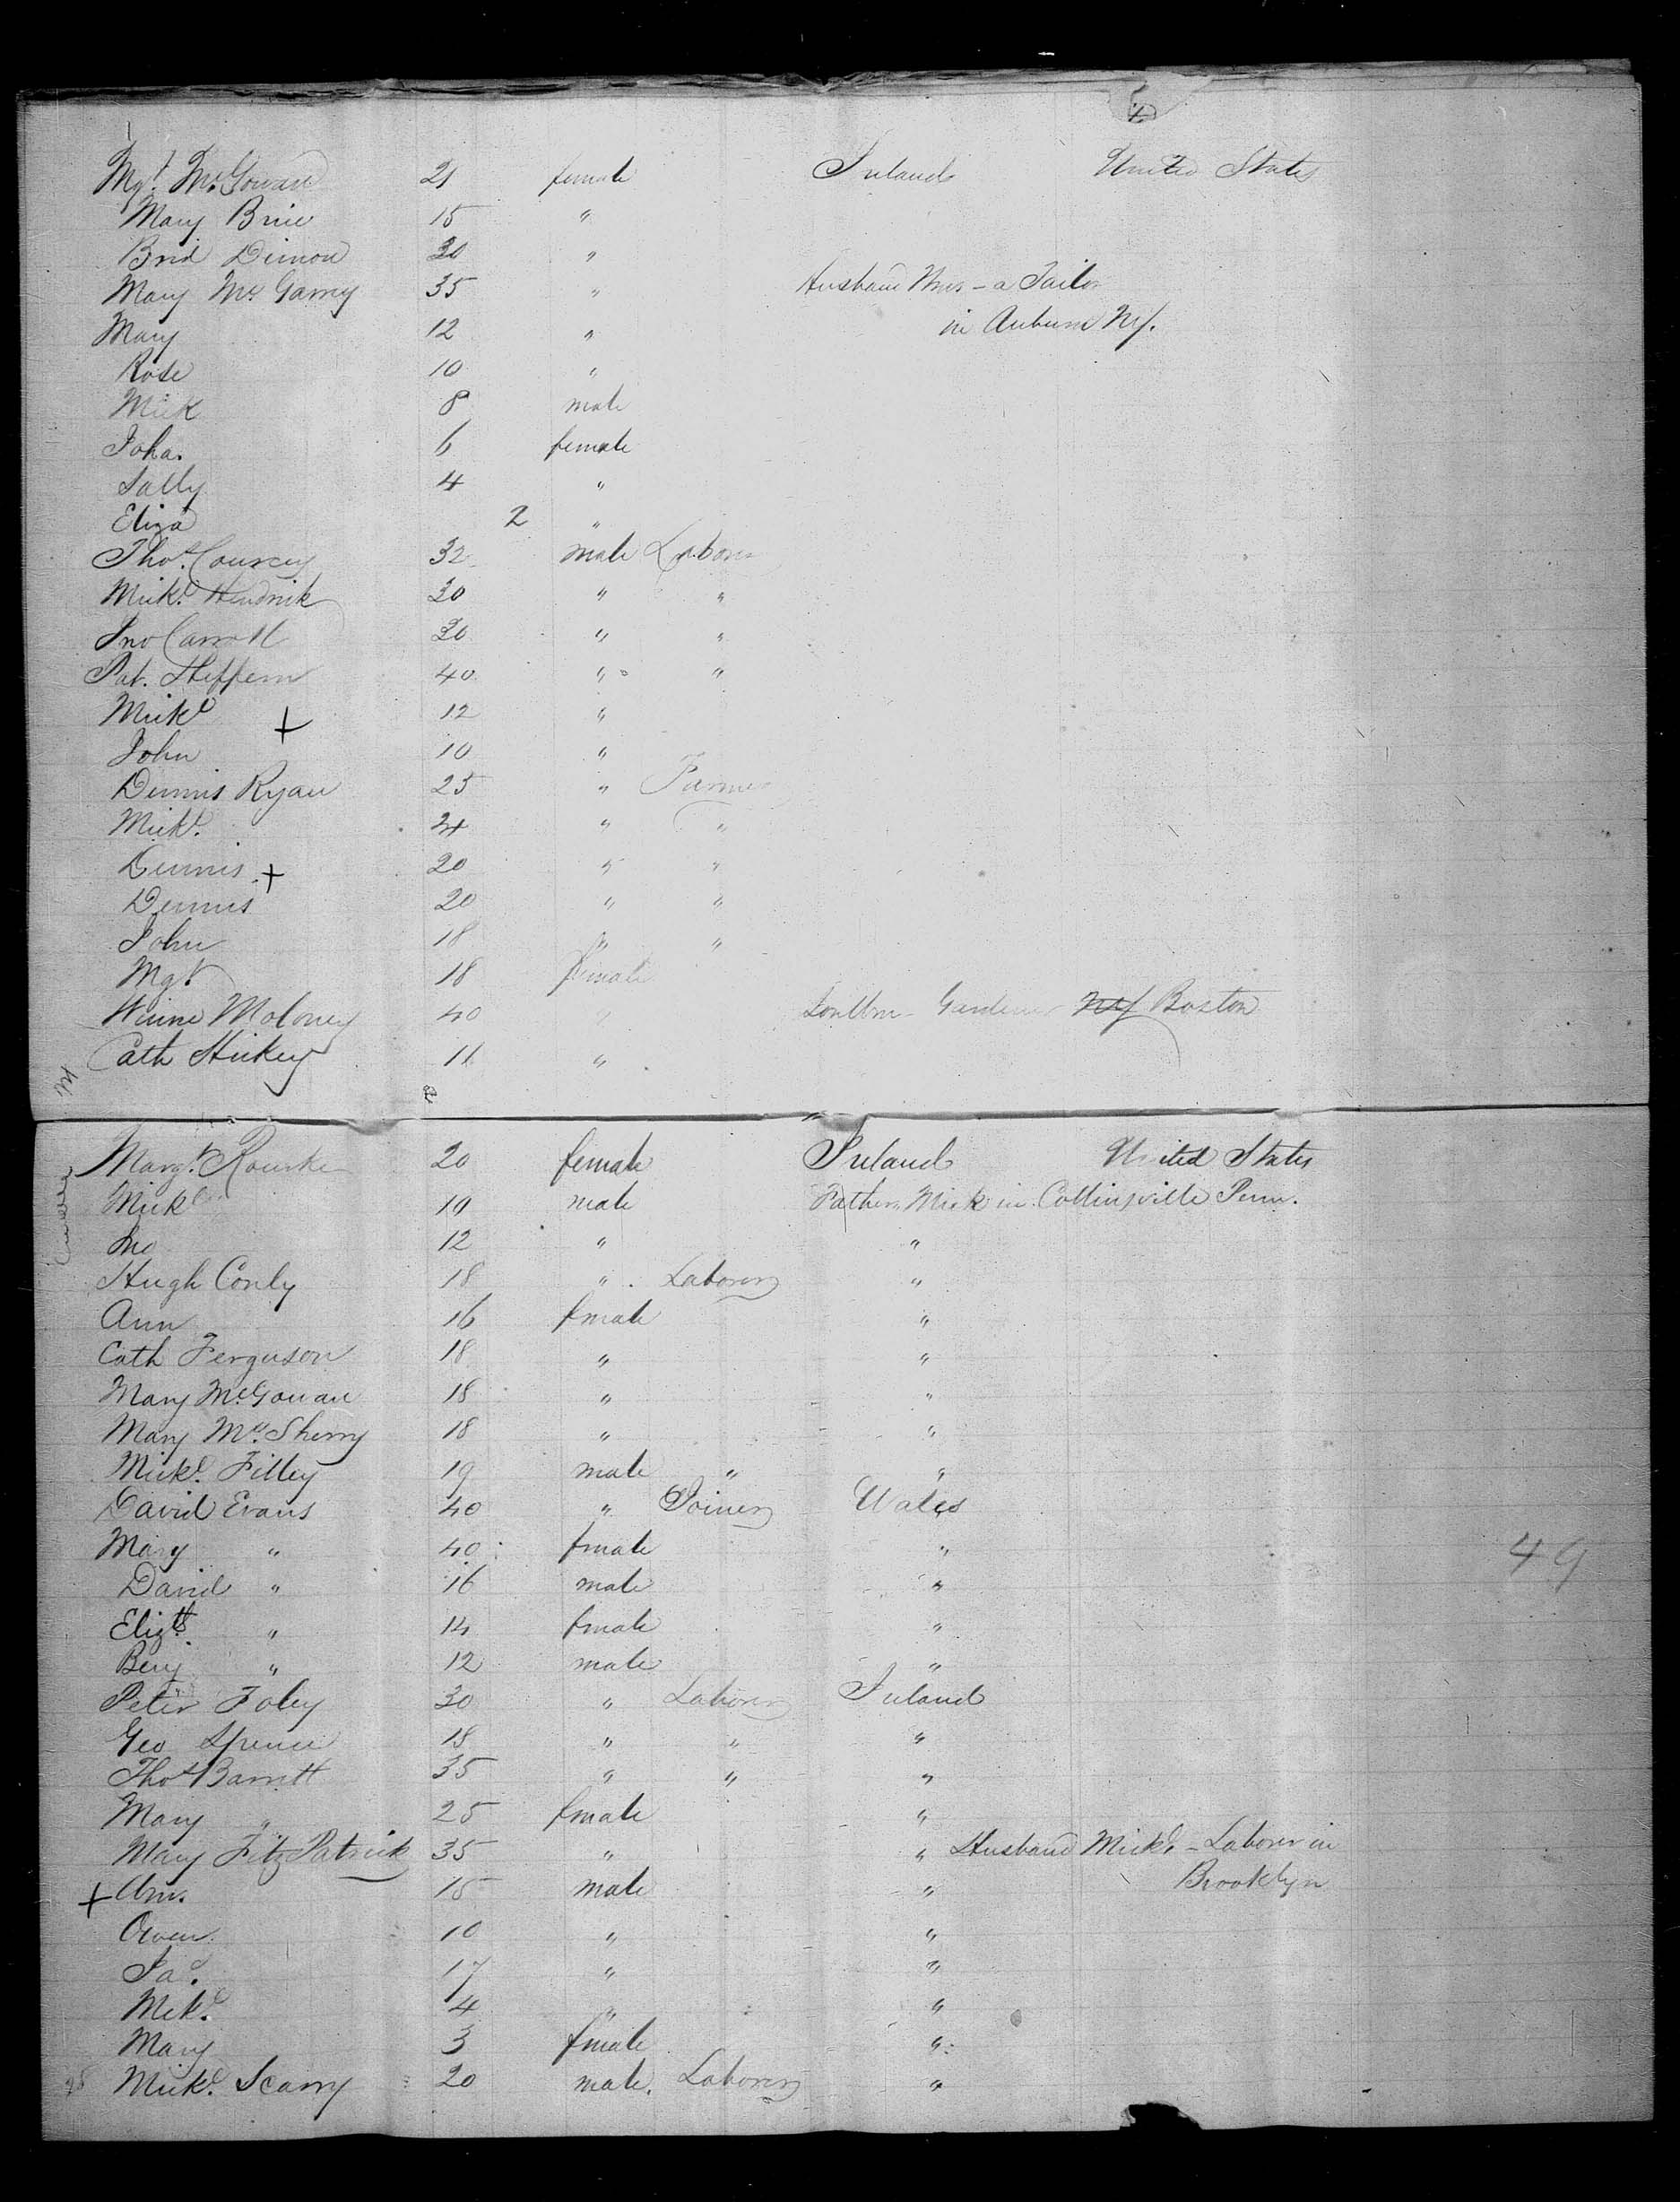 Mgt. McGowan 21 female Ireland United States
Mary Brice 15 "
Brid 30 "
Mary Mc Garry 35 " Husband - a Tailor
Mary 12 " in Auburn NY.
Rose 10 "
Mick 8 male
Joha. 6 female
Sally 4 "
Eliza 2 "
Thos. Courcey 32 male Laborer
Mickl. Hendrick 30 " "
Jno Carroll 30 " "
Pat. Heffern 40 " "
Mickl + 12 "
John 10 "
Dennis Ryan 25 " Farmer
Mickl. 24 " "
Dennis + 20 " "
Dennis 20 " "
John 18 " "
Mgt 18 female
Winne Moloney 40 " Gardener NY Boston
Cath Hickey 11 "
Margt. Rourke 20 female Ireland United States
Mickl 19 male Father Mick in Collinsville Penn.
Jno 12 " "
Hugh Conly 18 " Laborer "
Ann 16 fmale "
Cath Ferguson 18 " "
Mary McGowan 18 " "
Mary Mc. Sherry 18 " "
Mickl. Filley 19 male " "
David Evans 40 " Joiner Wales
Mary " 40 fmale "
49
David " 16 male "
Elizth " 14 fmale "
Benj " 12 male "
Peter Foley 30 " Laborer Ireland
Geo Spence 18 " " "
Thos Barrett 35 " " "
Mary " 25 fmale "
Mary FitzPatrick 35 " " Husband Mickl. - Laborer in
+ Wm. 15 male " Brooklyn
Owen 10 " "
Jas. 17 " "
Mckl. 4 " "
Mary 3 fmale "
Mickl. Scarry 20 male. Laborer "